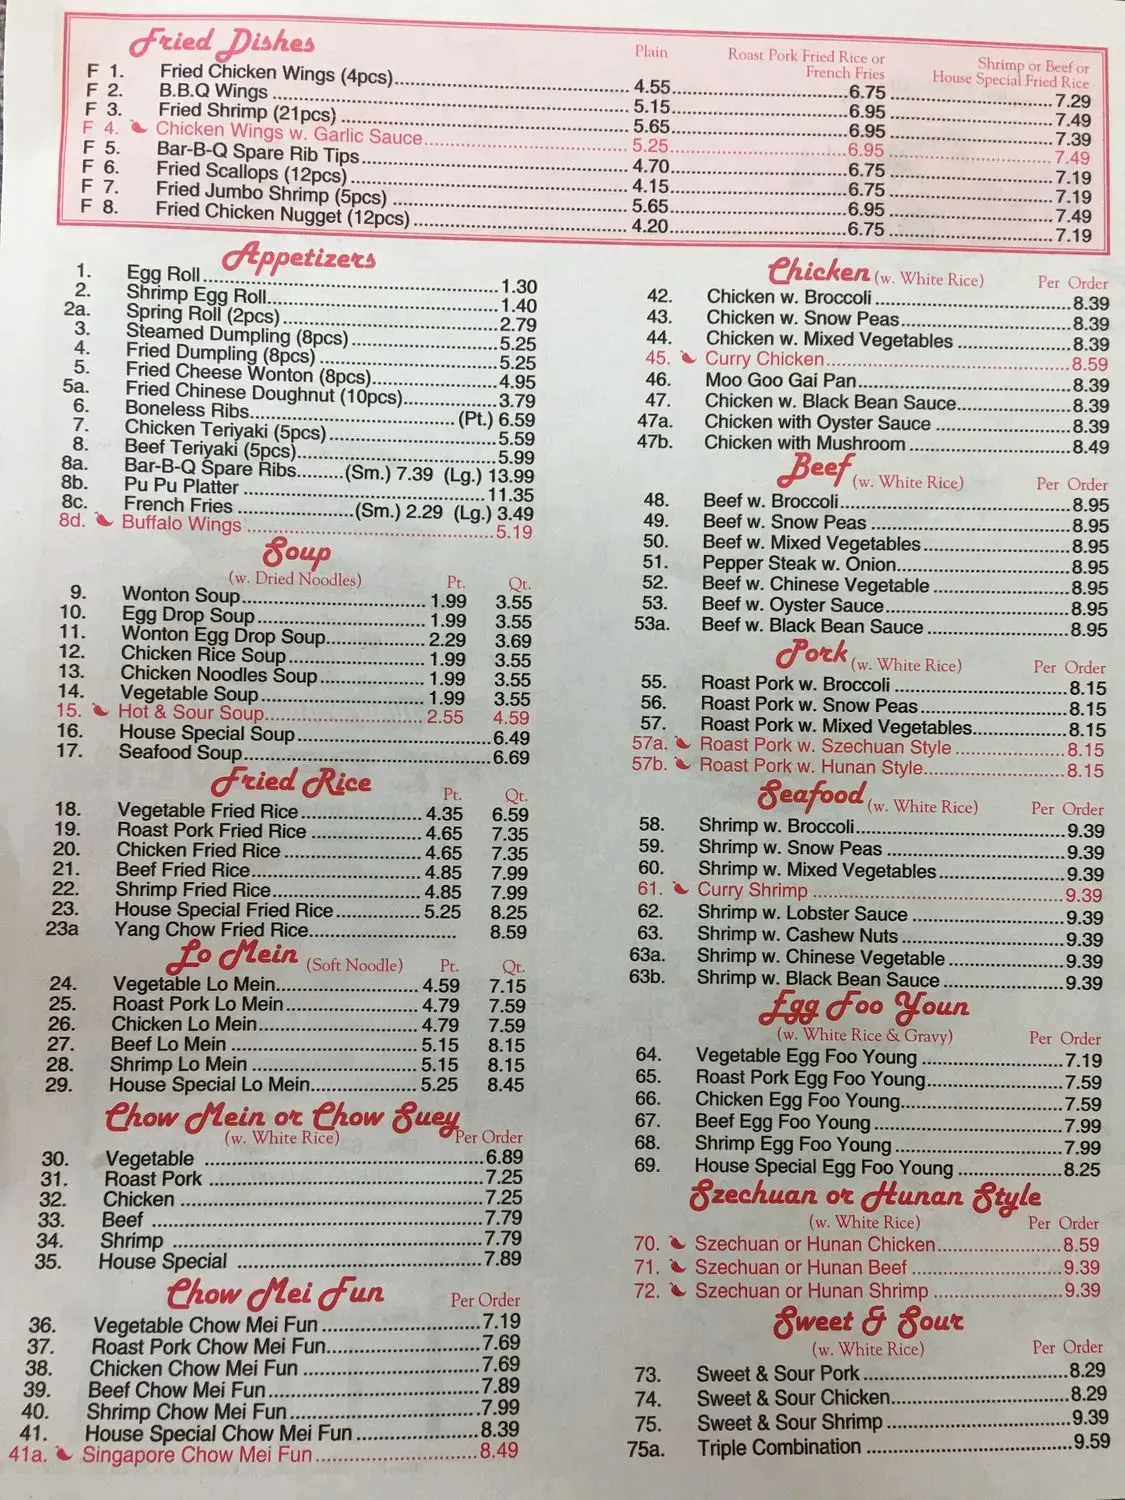 Fried Dishes Plain Roast Pork Fried Rice or French Fries Shrimp or Beef or House Special Fried Rice
F 1. Fried Chicken Wings (4pcs) 4.55 6.75 7.29
F 2. B.B.Q Wings 5.15 6.95 7.49
F 3. Fried Shrimp (21pcs) 5.65 6.95 7.39
F 4. Chicken Wings w. Garlic Sauce 5.25 6.95 7.49
F 5. Bar-B-Q Spare Rib Tips 4.70 6.75 7.19
F 6. Fried Scallops (12pcs) 4.15 6.75 7.19
F 7. Fried Jumbo Shrimp (5pcs) 5.65 6.95 7.49
F 8. Fried Chicken Nugget (12pcs) 4.20 6.75 7.19
Appetizers
1. Egg Roll 1.30
2. Shrimp Egg Roll 1.40
2a. Spring Roll (2pcs) 2.79
3. Steamed Dumpling (8pcs) 5.25
4. Fried Dumpling (8pcs) 5.25
5. Fried Cheese Wonton (8pcs) 4.95
5a. Fried Chinese Doughnut (10pcs) 3.79
6. Boneless Ribs (Pt.) 6.59
7. Chicken Teriyaki (5pcs) 5.59
8. Beef Teriyaki (5pcs) 5.99
8a. Bar-B-Q Spare Ribs (Sm.) 7.39 (Lg.) 13.99
8b. Pu Pu Platter 11.35
8c. French Fries (Sm.) 2.29 (Lg.) 3.49
8d. Buffalo Wings 5.19
Soup
(w. Dried Noodles) Pt. Qt.
9. Wonton Soup 1.99 3.55
10. Egg Drop Soup 1.99 3.55
11. Wonton Egg Drop Soup 2.29 3.69
12. Chicken Rice Soup 1.99 3.55
13. Chicken Noodles Soup 1.99 3.55
14. Vegetable Soup 1.99 3.55
15. Hot & Sour Soup 2.55 4.59
16. House Special Soup 6.49
17. Seafood Soup 6.69
Fried Rice Pt. Qt.
18. Vegetable Fried Rice 4.35 6.59
19. Roast Pork Fried Rice 4.65 7.35
20. Chicken Fried Rice 4.65 7.35
21. Beef Fried Rice 4.85 7.99
22. Shrimp Fried Rice 4.85 7.99
23. House Special Fried Rice 5.25 8.25
23a Yang Chow Fried Rice 8.59
Lo Mein (Soft Noodle) Pt. Qt.
24. Vegetable Lo Mein 4.59 7.15
25. Roast Pork Lo Mein 4.79 7.59
26. Chicken Lo Mein 4.79 7.59
27. Beef Lo Mein 5.15 8.15
28. Shrimp Lo Mein 5.15 8.15
29. House Special Lo Mein 5.25 8.45
Chow Mein or Chow Suey
(w. White Rice) Per Order
30. Vegetable 6.89
31. Roast Pork 7.25
32. Chicken 7.25
33. Beef 7.79
34. Shrimp 7.79
35. House Special 7.89
Chow Mei Fun Per Order
36. Vegetable Chow Mei Fun 7.19
37. Roast Pork Chow Mei Fun 7.69
38. Chicken Chow Mei Fun 7.69
39. Beef Chow Mei Fun 7.89
40. Shrimp Chow Mei Fun 7.99
41. House Special Chow Mei Fun 8.39
41a. Singapore Chow Mei Fun 8.49
Chicken (w. White Rice) Per Order
42. Chicken w. Broccoli 8.39
43. Chicken w. Snow Peas 8.39
44. Chicken w. Mixed Vegetables 8.39
45. Curry Chicken 8.59
46. Moo Goo Gai Pan 8.39
47. Chicken w. Black Bean Sauce 8.39
47a. Chicken with Oyster Sauce 8.39
47b. Chicken with Mushroom 8.49
Beef (w. White Rice) Per Order
48. Beef w. Broccoli 8.95
49. Beef w. Snow Peas 8.95
50. Beef w. Mixed Vegetables 8.95
51. Pepper Steak w. Onion 8.95
52. Beef w. Chinese Vegetable 8.95
53. Beef w. Oyster Sauce 8.95
53a. Beef w. Black Bean Sauce 8.95
Pork (w. White Rice) Per Order
55. Roast Pork w. Broccoli 8.15
56. Roast Pork w. Snow Peas 8.15
57. Roast Pork w. Mixed Vegetables 8.15
57a. Roast Pork w. Szechuan Style 8.15
57b. Roast Pork w. Hunan Style 8.15
Seafood (w. White Rice) Per Order
58. Shrimp w. Broccoli 9.39
59. Shrimp w. Snow Peas 9.39
60. Shrimp w. Mixed Vegetables 9.39
61. Curry Shrimp 9.39
62. Shrimp w. Lobster Sauce 9.39
63. Shrimp w. Cashew Nuts 9.39
63a. Shrimp w. Chinese Vegetable 9.39
63b. Shrimp w. Black Bean Sauce 9.39
Egg Foo Youn
(w. White Rice & Gravy) Per Order
64. Vegetable Egg Foo Young 7.19
65. Roast Pork Egg Foo Young 7.59
66. Chicken Egg Foo Young 7.59
67. Beef Egg Foo Young 7.99
68. Shrimp Egg Foo Young 7.99
69. House Special Egg Foo Young 8.25
Szechuan or Hunan Style
(w. White Rice) Per Order
70. Szechuan or Hunan Chicken 8.59
71. Szechuan or Hunan Beef 9.39
72. Szechuan or Hunan Shrimp 9.39
Sweet & Sour
(w. White Rice) Per Order
73. Sweet & Sour Pork 8.29
74. Sweet & Sour Chicken 8.29
75. Sweet & Sour Shrimp 9.39
75a. Triple Combination 9.59